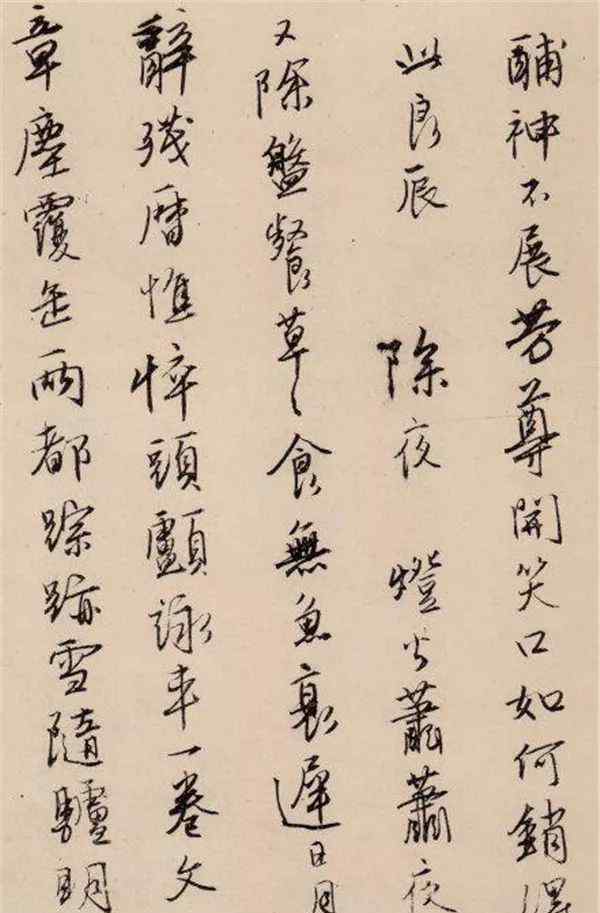 酺神不展芳尊開笑口如何銷得
此良辰　除夜　燈火蕭蕭夜
又除盤餐草々食無魚衰遲日月
辭殘曆憔悴頭顱詠車一卷文
章塵覆缶兩都踪跡雪隨驢明